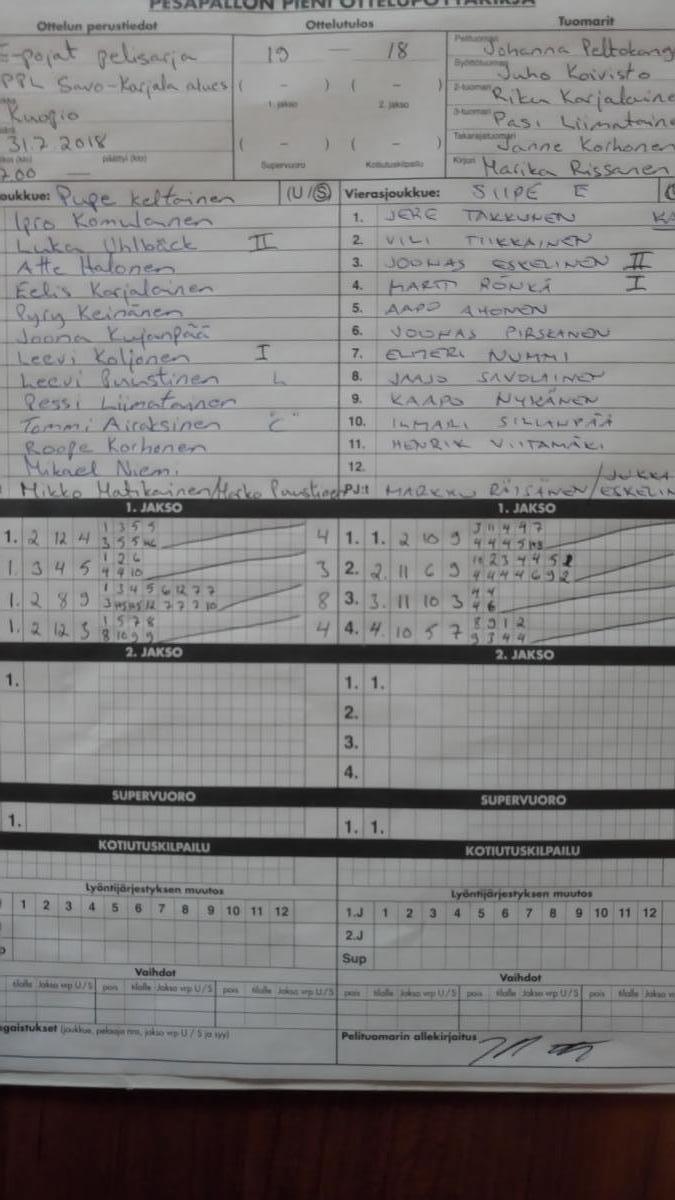 PESÄPALLON PIENI OTTELUPÖYTÄKIRJA
Ottelun perustiedot
Ottelutulos
Tuomarit
E-pojat pelisarja
PPL Savo-Karjala alues
Kuopio
31.7.2018
päättyi (klo)
19 — 18
( - ) ( - )
1. jakso 2. jakso
( - ) ( - )
Supervuoro Kotiutuskilpailu
Pelituomari Johanna Peltokang
Syöttötuomari Juho Koivisto
2-tuomari Riku Karjalaine
3-tuomari Pasi Liimataine
Takarajatuomari Janne Korhonen
Kirjuri Marika Rissanen
oukkue: Pupe keltainen (U/S)
Ipro Komulainen
Luka Uhlbäck II
Atte Halonen
Eelis Karjalainen
Pyry Keinänen
Joona Kujanpää
Leevi Koljonen I
Leevi Puustinen L
Pessi Liimatainen
Tommi Airaksinen "C"
Roope Korhonen
Mikael Niemi
Mikko Matikainen/Marko Puustinen
Vierasjoukkue: SIIPE E
1. JERE TAKKUNEN
2. VILI TIIKKAINEN
3. JOONAS ESKELINEN II
4. MARTTI RÖNKÄ I
5. AAPO AHONEN
6. JOONAS PIRSKANEN
7. ELMERI NUMMI
8. JAAJO SAVOLAINEN
9. KAAPO NYKÄNEN
10. ILMARI SILLANPÄÄ
11. HENRIK VIITAMÄKI
12.
PJ:t MARKKU RÄISÄNEN/JUKKA ESKELIN
1. JAKSO
1. 2 12 4 1 3 5 5 4
3 5 5
1. 3 4 5 1 2 6 3
4 4 10
1. 2 8 9 1 3 4 5 6 12 7 7 8
1. 2 12 3 1 5 7 8 4
8 10 9 9
1. JAKSO
1. 1. 2 10 9 3 11 4 4 7
4 4 4 5
2. 2. 11 6 9
4 4 4 4 6 9 2
3. 3. 11 10 3 4 4
4 6
4. 4. 10 5 7 8 9 1 2
9 3 4 4
2. JAKSO
1.
2. JAKSO
1. 1.
2.
3.
4.
SUPERVUORO
1.
SUPERVUORO
1. 1.
KOTIUTUSKILPAILU
KOTIUTUSKILPAILU
Lyöntijärjestyksen muutos
1 2 3 4 5 6 7 8 9 10 11 12
Lyöntijärjestyksen muutos
1.J 1 2 3 4 5 6 7 8 9 10 11 12
2.J
Sup
Vaihdot
tilalle Jakso vrp U/S pois tilalle Jakso vrp U/S pois tilalle Jakso vrp U/S
Vaihdot
pois tilalle Jakso vrp U/S pois tilalle Jakso vrp U/S pois tilalle Jakso
ngaistukset (joukkue, pelaaja nro, jakso vrp U / S ja syy)
Pelituomarin allekirjoitus